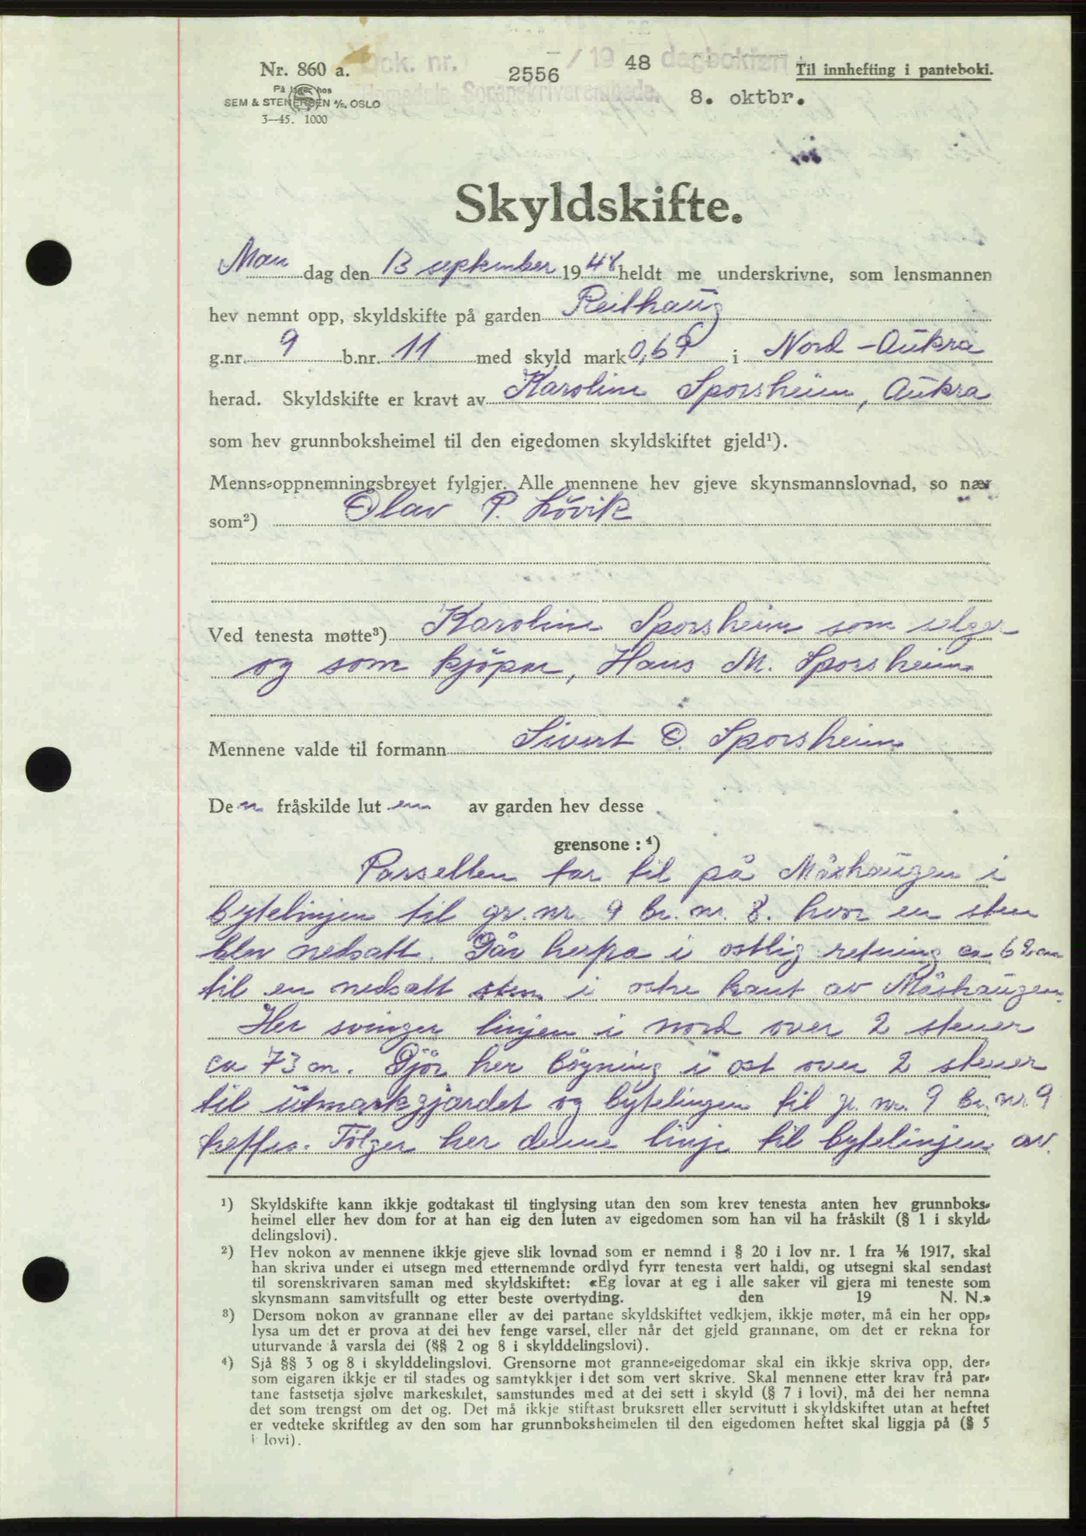 Nr. 860 a.
På lager hos
SEM & STENERSEN A/S, OSLO
3—45. 1000
Dok. nr. 2556 / 19 48 dagbokført
Romsdals Sorenskriverembede.
8. oktbr.
Til innhefting i panteboki.
Skyldskifte.
Man dag den 13 september 1948 heldt me underskrivne, som lensmannen
hev nemnt opp, skyldskifte på garden Reithaug
g.nr. 9 b.nr. 11 med skyld mark 0,69 i Nord-Aukra
herad. Skyldskifte er kravt av Karoline Sporsheim, Aukra
som hev grunnboksheimel til den eigedomen skyldskiftet gjeld¹).
Menns-oppnemningsbrevet fylgjer. Alle mennene hev gjeve skynsmannslovnad, so nær
som²) Olav P. Lövik
Ved tenesta møtte³) Karoline Sporsheim som selger
og som kjöper, Hans M. Sporsheim
Mennene valde til formann Sivert O. Sporsheim
Den fråskilde luten av garden hev desse
grensone : ⁴)
Parsellen tar til på Måshaugen i
bytelinjen til gr. nr. 9 br. nr. 8. hvor en sten
blev nedsatt. Går herfra i östlig retning ca 62 m
til en nedsatt sten i östre kant av Måshaugen.
Her svinger linjen i nord over 2 stener
ca 73 m. Gjör her böyning i öst over 2 stener
til utmarkgjærdet og bytelingen til gr. nr. 9 br. nr 9
treffes. Fölger her denne linje til bytelinjen av
¹) Skyldskifte kann ikkje godtakast til tinglysing utan den som krev tenesta anten hev grunnboks-
heimel eller hev dom for at han eig den luten av eigedomen som han vil ha fråskilt (§ 1 i skyld-
delingslovi).
²) Hev nokon av mennene ikkje gjeve slik lovnad som er nemnd i § 20 i lov nr. 1 fra 1/6 1917, skal
han skriva under ei utsegn med etternemnde ordlyd fyrr tenesta vert haldi, og utsegni skal sendast
til sorenskrivaren saman med skyldskiftet: «Eg lovar at eg i alle saker vil gjera mi teneste som
skynsmann samvitsfullt og etter beste overtyding. den 19 N. N.»
³) Dersom nokon av grannane eller av dei partane skyldskiftet vedkjem, ikkje møter, må ein her opp-
lysa um det er prova at dei hev fenge varsel, eller når det gjeld grannane, om det er rekna for
uturvande å varsla dei (§§ 2 og 8 i skylddelingslovi).
⁴) Sjå §§ 3 og 8 i skylddelingslovi. Grensorne mot granne-eigedomar skal ein ikkje skriva opp, der-
som eigaren ikkje er til stades og samtykkjer i det som vert skrive. Skal mennene etter krav frå par-
tane fastsetja sjølve markeskilet, samstundes med at dei sett i skyld (§ 7 i lovi), må dei her nemna
det som trengst om det og. Det må ikkje stiftast bruksrett eller servitutt i skyldskiftet utan at heftet
er vedteke skriftleg av den som har grunnboksheimelen til den eigedomen heftet skal liggja på (§ 5
i lovi).